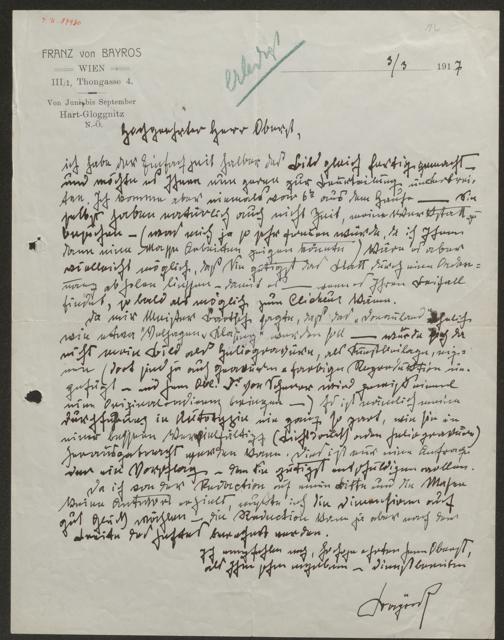 FRANZ von BAYROS
WIEN
III/1, Thongasse 4.
Von Juni bis September
Hart-Gloggnitz
N.-Ö.
erledigt
3/3 1917
Hochgeehrter Herr Oberst,
ich habe der Einfachheit halber das Bild gleich fertig gemacht
und möchte es Ihnen nun gerne zur Beurteilung unterbrei-
ten. Ich komme aber niemals vor 6h aus dem Hause — Sie
selbst haben natürlich auch nicht Zeit, meine Werkstatt zu
besuchen — (was mich ja so sehr freuen würde, da ich Ihnen
dann eine Masse Arbeiten zeigen könnte) Wäre es aber
vielleicht möglich, daß Sie gütigst das Blatt durch eine Ordon-
nanz abholen liessen — damit es — wenn es Ihren Beifall
findet, so bald als möglich zum Clichieren kann.
Da mir Meister Bartsch sagte, daß das "Donauland" ähnlich
wie etwa "Velhagen & Klasing" werden soll — würde sich da
nicht mein Bild als Heliogravüre, als Kunstbeilage, eig-
nen (dort sind ja auch Gravüren & farbige Reproduktion ein-
gefügt —
Es ist nämlich meine
Durchführung in Autotypie nie ganz so zart, wie sie in
einer besseren Vervielfältigg (Lichtdruck oder Heliogravüre)
herausgebracht werden kann. Dies ist nur eine Anfrage
oder ein Vorschlag — den Sie gütigst entschuldigen wollen.
Da ich von der Redaction auf meine Bitte um die Masse
keine Antwort erhielt, mußte ich die Dimensionen auf
gut Glück wählen — die Redaction kann ja aber nach der
Breite des Heftes berechnet werden.
Ich empfehle mich, hochgeehrter Herr Oberst,
als Ihr sehr ergebener — dienstbereiter
Bayros